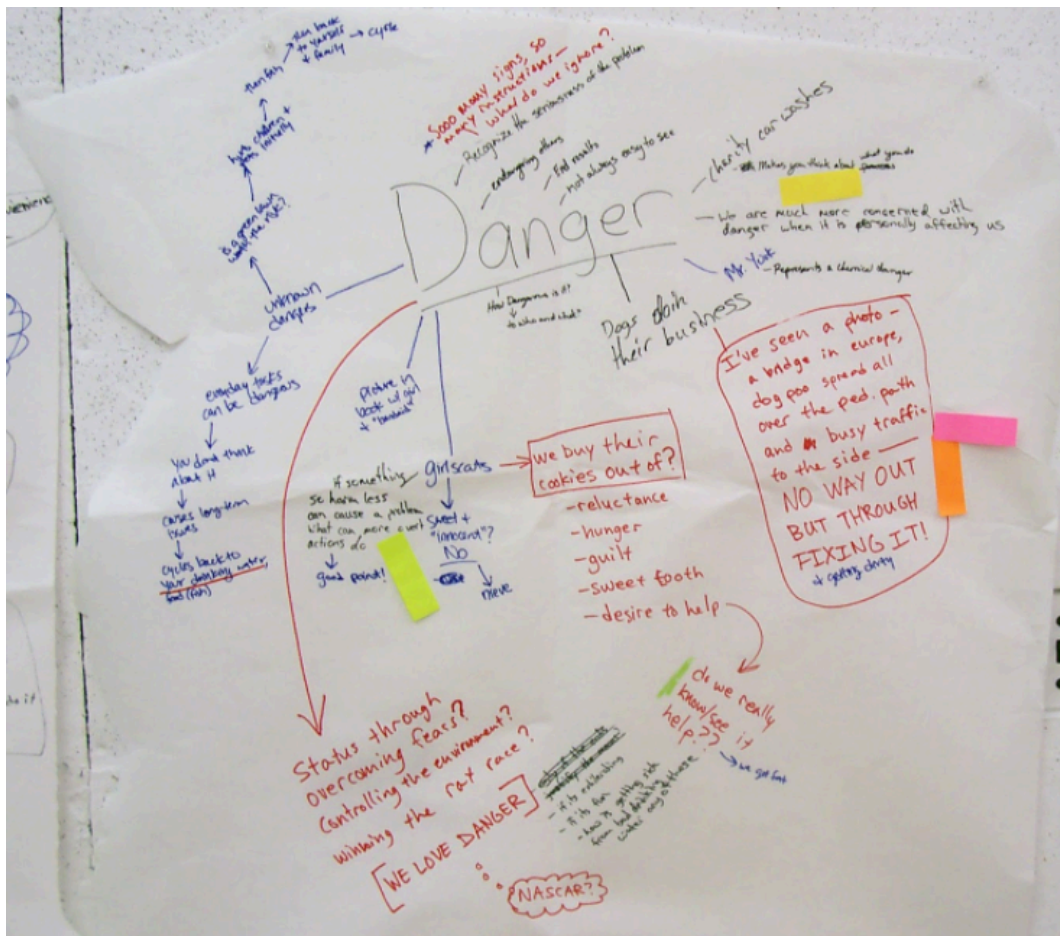 then back
to yourself
+ family → cycle
then fish
hurts children +
pets initially
is a green lawn
worth the risk?
unknown
dangers
everyday tasks
can be dangerous
you dont think
about it
causes long-term
issues
cycles back to
your drinking water,
food (fish)
Sooo many signs, so
many instructions —
what do we ignore?
Recognize the seriousness of the problem
endangering others
End results
not always easy to see
Danger
charity car washes
Makes you think about what you do
We are much more concerned with
danger when it is personally affecting us
Mr. Yuk
- Represents a chemical danger
How Dangerous is it?
to who and what?
Dogs doin
their business
I've seen a photo —
a bridge in europe,
dog poo spread all
over the ped. path
and busy traffic
to the side —
NO WAY OUT
BUT THROUGH
FIXING IT!
+ getting dirty
picture in
book w/ girl
girlscats
if something
so harm less
can cause a problem
What can more overt
actions do
good point!
sweet +
"innocent"?
No
nieve
we buy their
cookies out of?
-reluctance
-hunger
-guilt
-sweet tooth
-desire to help
do we really
know/see it
help??
we get fat
Status through
overcoming fears?
Controlling the environment?
winning the rat race?
[WE LOVE DANGER]
NASCAR?
- if its exhilarating
- if its fun
- how is getting sick
from bad drinking
water any of these
do it